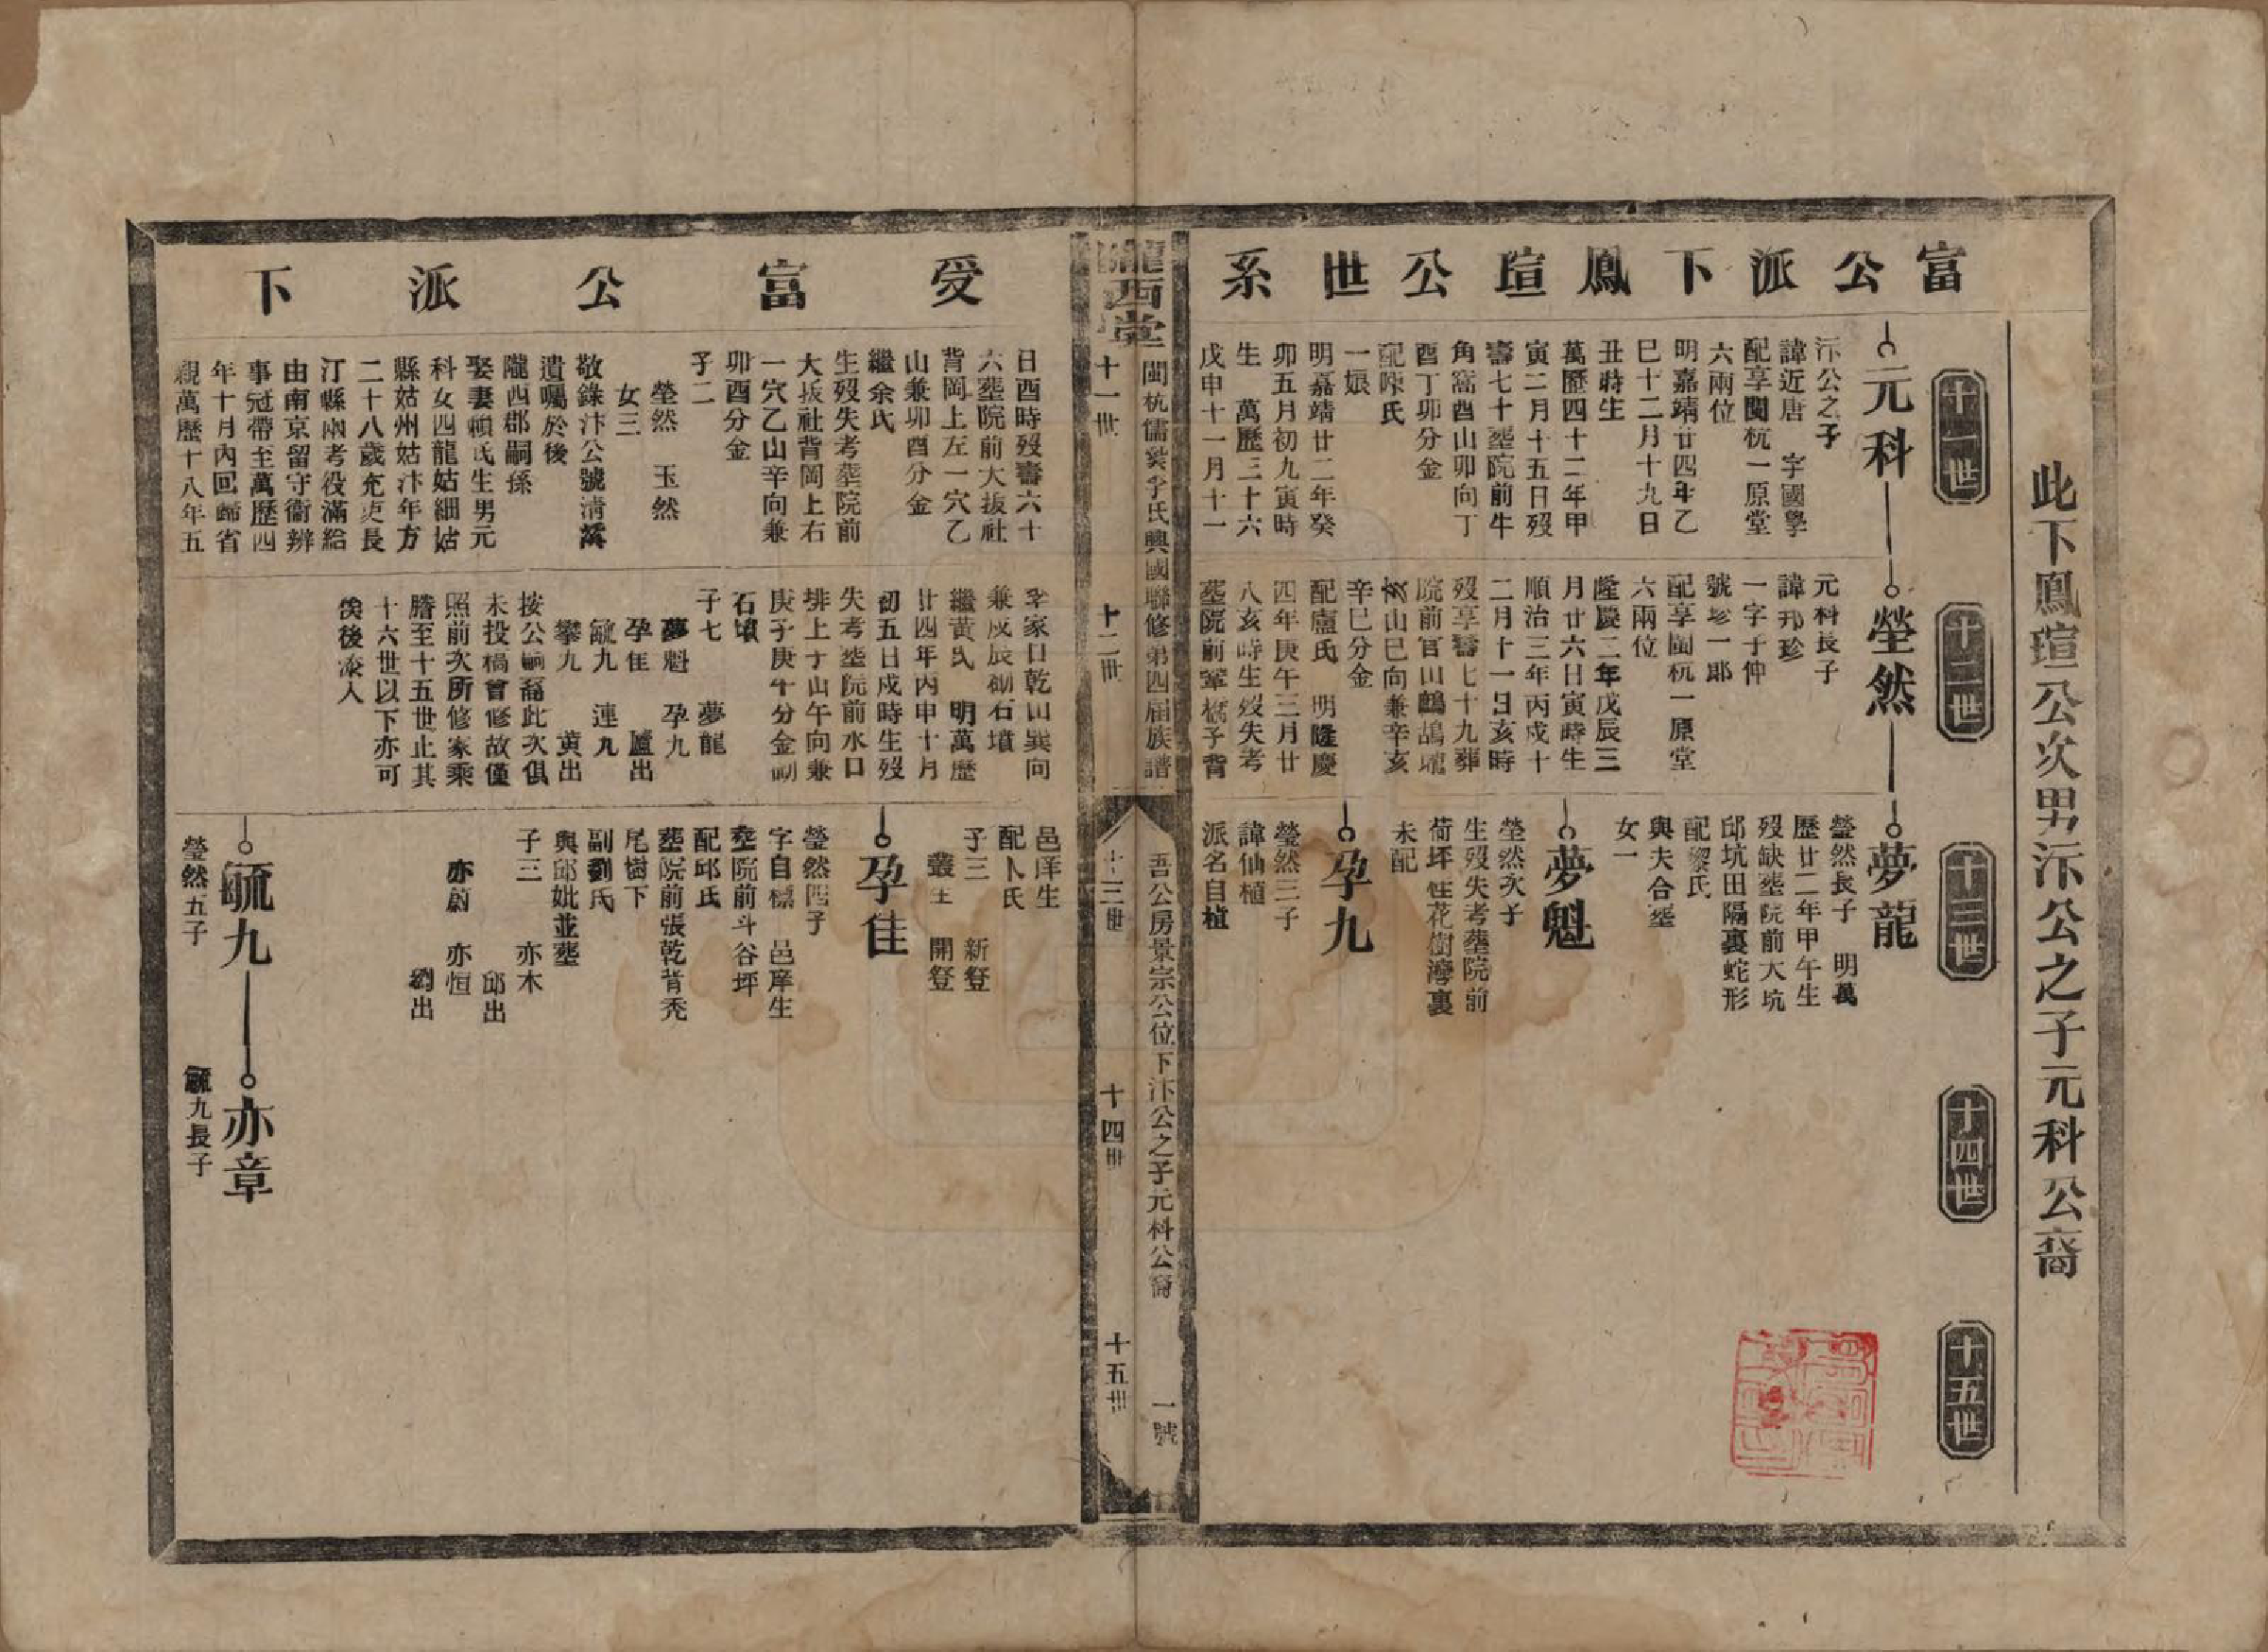 此下鳳瑄公次男汴公之子元科公裔
富公派下鳳瑄公世系
十一世
十二世
十三世
十四世
十五世
元科
汴公之子
諱近唐　字國學
配享閩杭一原堂
六兩位
明嘉靖廿四年乙
巳十二月十九日
丑時生
萬歷四十二年甲
寅二月十五日歿
壽七十塟院前牛
角窩酉山卯向丁
酉丁卯分金
配陳氏
一娘
明嘉靖廿二年癸
卯五月初九寅時
生　萬歷三十六
戊申十一月十一
塋然
元科長子
諱邦珍
一字子仲
號珍一郎
配享閩杭一原堂
六兩位
隆慶二年戊辰三
月廿六日寅時生
順治三年丙戍十
二月十一日亥時
歿享壽七十九葬
院前官山鷓鴣壠
亥山巳向兼辛亥
辛巳分金
配廬氏　明隆慶
四年庚午三月廿
八亥時生歿失考
塟院前
夢龍
瑩然長子　明萬
歷廿二年甲午生
歿缺塟院前大坑
邱坑田隔裏蛇形
配黎氏
與夫合塟
女一
夢魁
塋然次子
生歿失考塟院前
荷坪性花樹灣裏
未配
孕九
瑩然三子
諱仙植
派名自植
隴西堂
閩杭儒紫李氏興國聯修第四届族譜
吾公房景宗公位下汴公之子元科公裔
一號
十一世
十二世
十三世
十四世
十五世
受富公派下
日酉時歿壽六十
六塟院前大拔社
背岡上左一穴乙
山兼卯酉分金
繼余氏
生歿失考塟院前
大坂社背岡上右
一穴乙山辛向兼
卯酉分金
子二
瑩然　玉然
女三
敬錄汴公號清溪
遺囑於後
隴西郡嗣孫
娶妻賴氏生男元
科女四龍姑細姑
縣姑州姑汴年方
二十八歲充吏長
汀縣兩考役滿給
由南京留守衞辨
事冠帶至萬歷四
年十月內回歸省
親萬歷十八年五
家日乾山巽向
兼戍辰砌石墳
繼黃氏　明萬歷
廿四年丙申十月
初五日戍時生歿
失考塟院前水口
排上子山午向兼
庚子庚午分金砌
石墳
子七　夢龍
夢魁　孕九
孕佳　廬出
毓九　連九
攀九　黃出
按公嗣裔此次俱
未投稿會修故僅
照前次所修家乘
謄至十五世止其
十六世以下亦可
俟後添入
邑庠生
配卜氏
子三　新登
叢生　開登
孕佳
瑩然四子
字自標　邑庠生
塟院前斗谷坪
配邱氏
塟院前張乾背禿
尾樹下
副劉氏
與邱妣並塟
子三　亦木
邱出
亦蔚　亦恒
劉出
毓九
瑩然五子
亦章
毓九長子